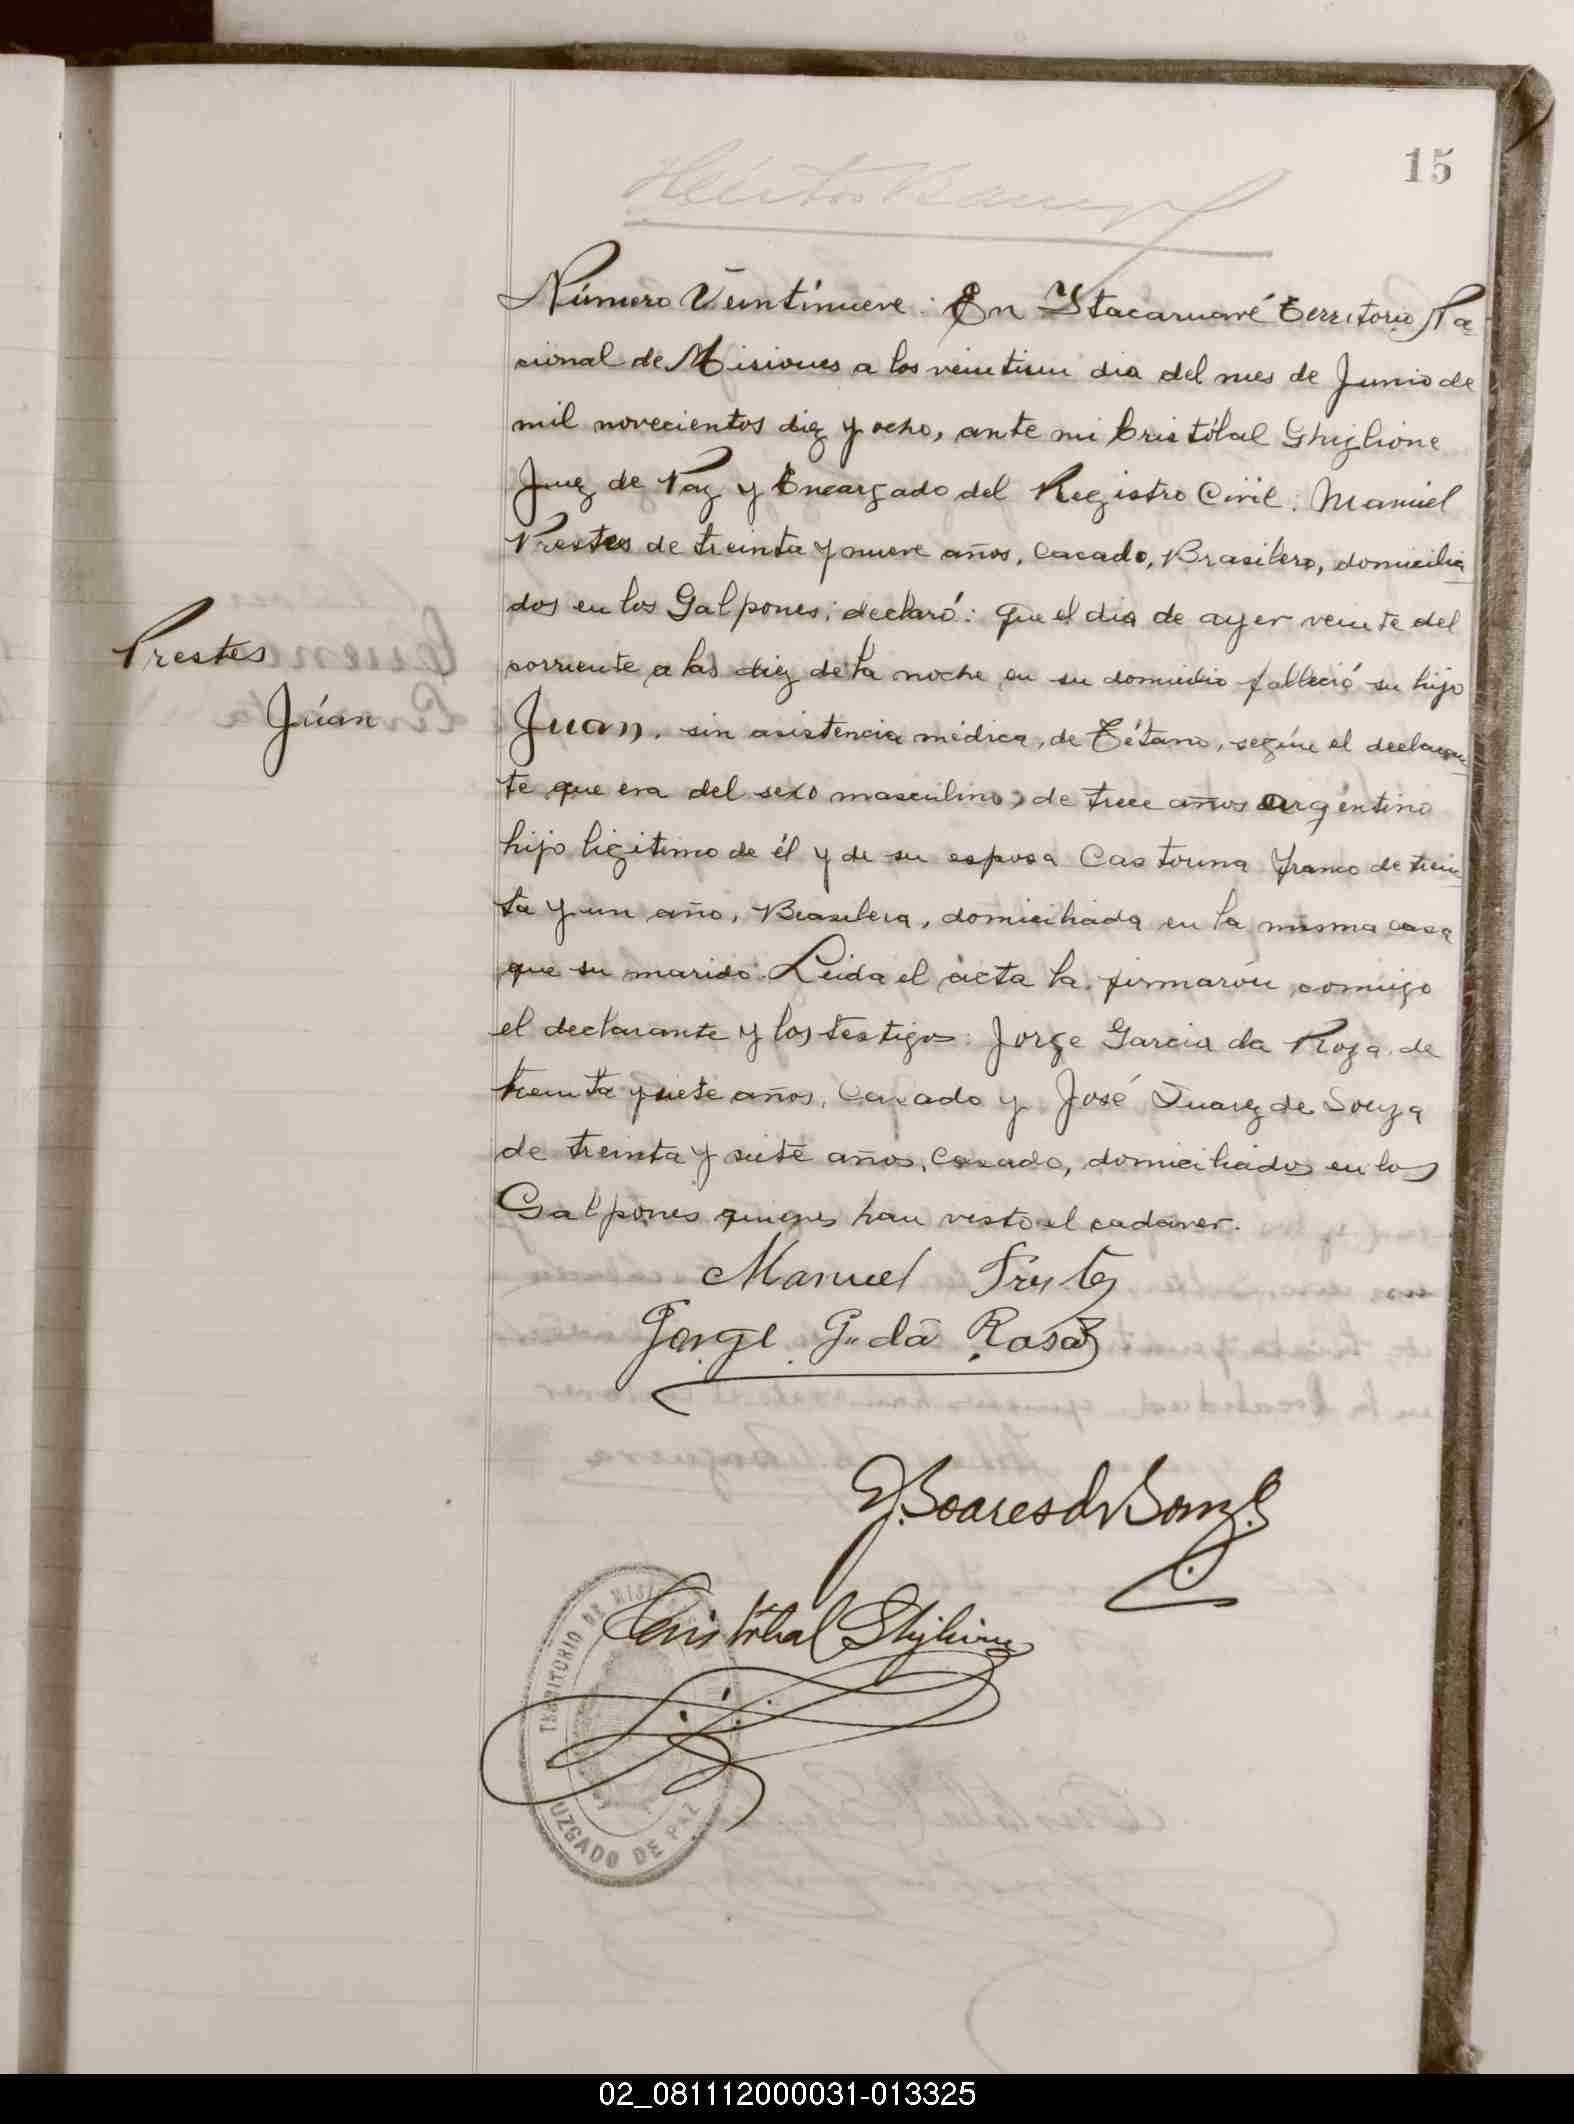 15
Número Veintinueve: En Itacaruaré Territorio Na
cional de Misiones a los veintiun dia del mes de Junio de
mil novecientos diez y ocho, ante mi Cristóbal Ghiglione
Juez de Paz y Encargado del Registro Civil: Manuel
Prestes de treinta y nueve años, Casado, Brasilero, domicilia
dos en los Galpones; declaró: que el dia de ayer veinte del
corriente a las diez de la noche en su domicilio falleció su hijo
Prestes
Júan
Juan, sin asistencia médica, de Tétano, según el declaran
te que era del sexo masculino, de trece años argentino
hijo ligitimo de él y de su esposa Castorina Franco de trein
ta y un año, Brasilera, domiciliada en la misma casa
que su marido. Leida el acta la firmarón comigo
el declarante y los testigos: Jorge Garcia da Roza de
treinta y siete años, Casado y José Suarez de Souza
de treinta y siete años, Casado, domiciliados en los
Galpones quienes han visto el cadaver.
Manuel Prestes
Jorge G. da Rosa
J. Soares d Souza
Cristóbal Ghiglione
TERRITORIO DE MISIONES
JUZGADO DE PAZ
02_081112000031-013325